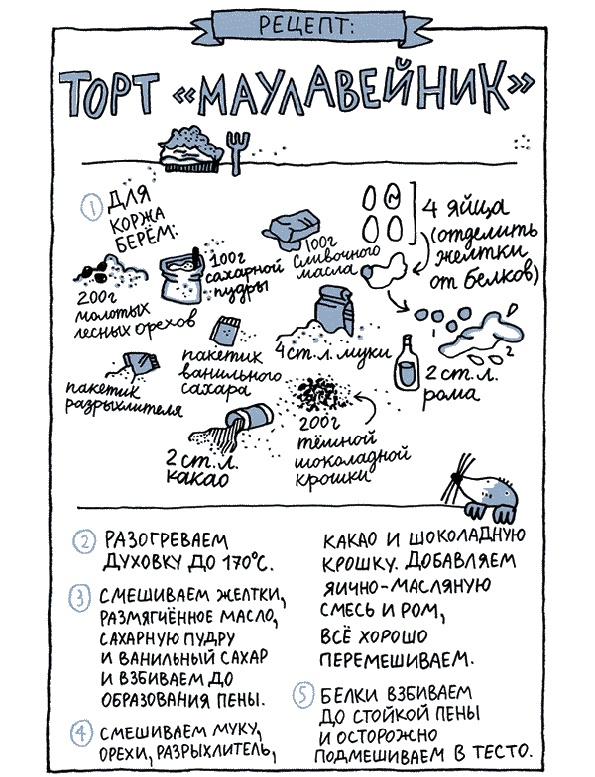 РЕЦЕПТ:
ТОРТ «МАУЛАВЕЙНИК»
1 ДЛЯ
КОРЖА
БЕРЁМ:
200г
молотых
лесных орехов
100г
сахарной
пудры
100г
сливочного
масла
4 яйца
(отделить
желтки
от белков)
пакетик
разрыхлителя
пакетик
ванильного
сахара
4 ст. л. муки
1
2
2 ст. л.
рома
2 ст. л.
какао
200г
тёмной
шоколадной
крошки
2 РАЗОГРЕВАЕМ
ДУХОВКУ ДО 170°С.
3 СМЕШИВАЕМ ЖЕЛТКИ,
РАЗМЯГЧЁННОЕ МАСЛО,
САХАРНУЮ ПУДРУ
И ВАНИЛЬНЫЙ САХАР
И ВЗБИВАЕМ ДО
ОБРАЗОВАНИЯ ПЕНЫ.
4 СМЕШИВАЕМ МУКУ,
ОРЕХИ, РАЗРЫХЛИТЕЛЬ,
КАКАО И ШОКОЛАДНУЮ
КРОШКУ. ДОБАВЛЯЕМ
ЯИЧНО-МАСЛЯНУЮ
СМЕСЬ И РОМ,
ВСЁ ХОРОШО
ПЕРЕМЕШИВАЕМ.
5 БЕЛКИ ВЗБИВАЕМ
ДО СТОЙКОЙ ПЕНЫ
И ОСТОРОЖНО
ПОДМЕШИВАЕМ В ТЕСТО.